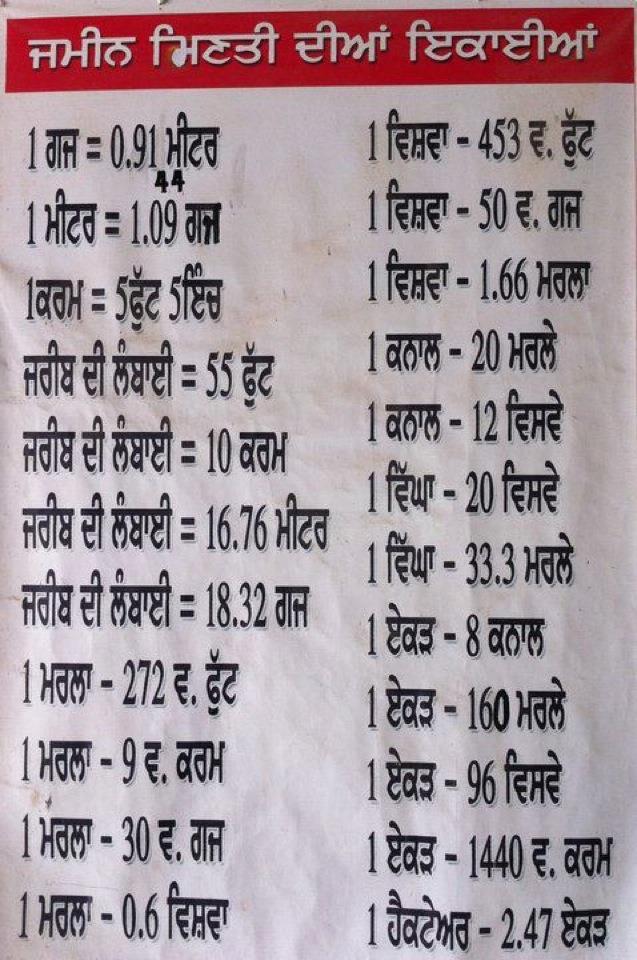 ਜਮੀਨ ਮਿਣਤੀ ਦੀਆਂ ਇਕਾਈਆਂ
1 ਗਜ = 0.91 ਮੀਟਰ
44
1 ਮੀਟਰ = 1.09 ਗਜ
1ਕਰਮ = 5ਫੁੱਟ 5ਇੰਚ
ਜਰੀਬ ਦੀ ਲੰਬਾਈ = 55 ਫੁੱਟ
ਜਰੀਬ ਦੀ ਲੰਬਾਈ = 10 ਕਰਮ
ਜਰੀਬ ਦੀ ਲੰਬਾਈ = 16.76 ਮੀਟਰ
ਜਰੀਬ ਦੀ ਲੰਬਾਈ = 18.32 ਗਜ
1 ਮਰਲਾ - 272 ਵ. ਫੁੱਟ
1 ਮਰਲਾ - 9 ਵ. ਕਰਮ
1 ਮਰਲਾ - 30 ਵ. ਗਜ
1 ਮਰਲਾ - 0.6 ਵਿਸ਼ਵਾ
1 ਵਿਸ਼ਵਾ - 453 ਵ. ਫੁੱਟ
1 ਵਿਸ਼ਵਾ - 50 ਵ. ਗਜ
1 ਵਿਸ਼ਵਾ - 1.66 ਮਰਲਾ
1 ਕਨਾਲ - 20 ਮਰਲੇ
1 ਕਨਾਲ - 12 ਵਿਸਵੇ
1 ਵਿੱਘਾ - 20 ਵਿਸਵੇ
1 ਵਿੱਘਾ - 33.3 ਮਰਲੇ
1 ਏਕੜ - 8 ਕਨਾਲ
1 ਏਕੜ - 160 ਮਰਲੇ
1 ਏਕੜ - 96 ਵਿਸਵੇ
1 ਏਕੜ - 1440 ਵ. ਕਰਮ
1 ਹੈਕਟੇਅਰ - 2.47 ਏਕੜ